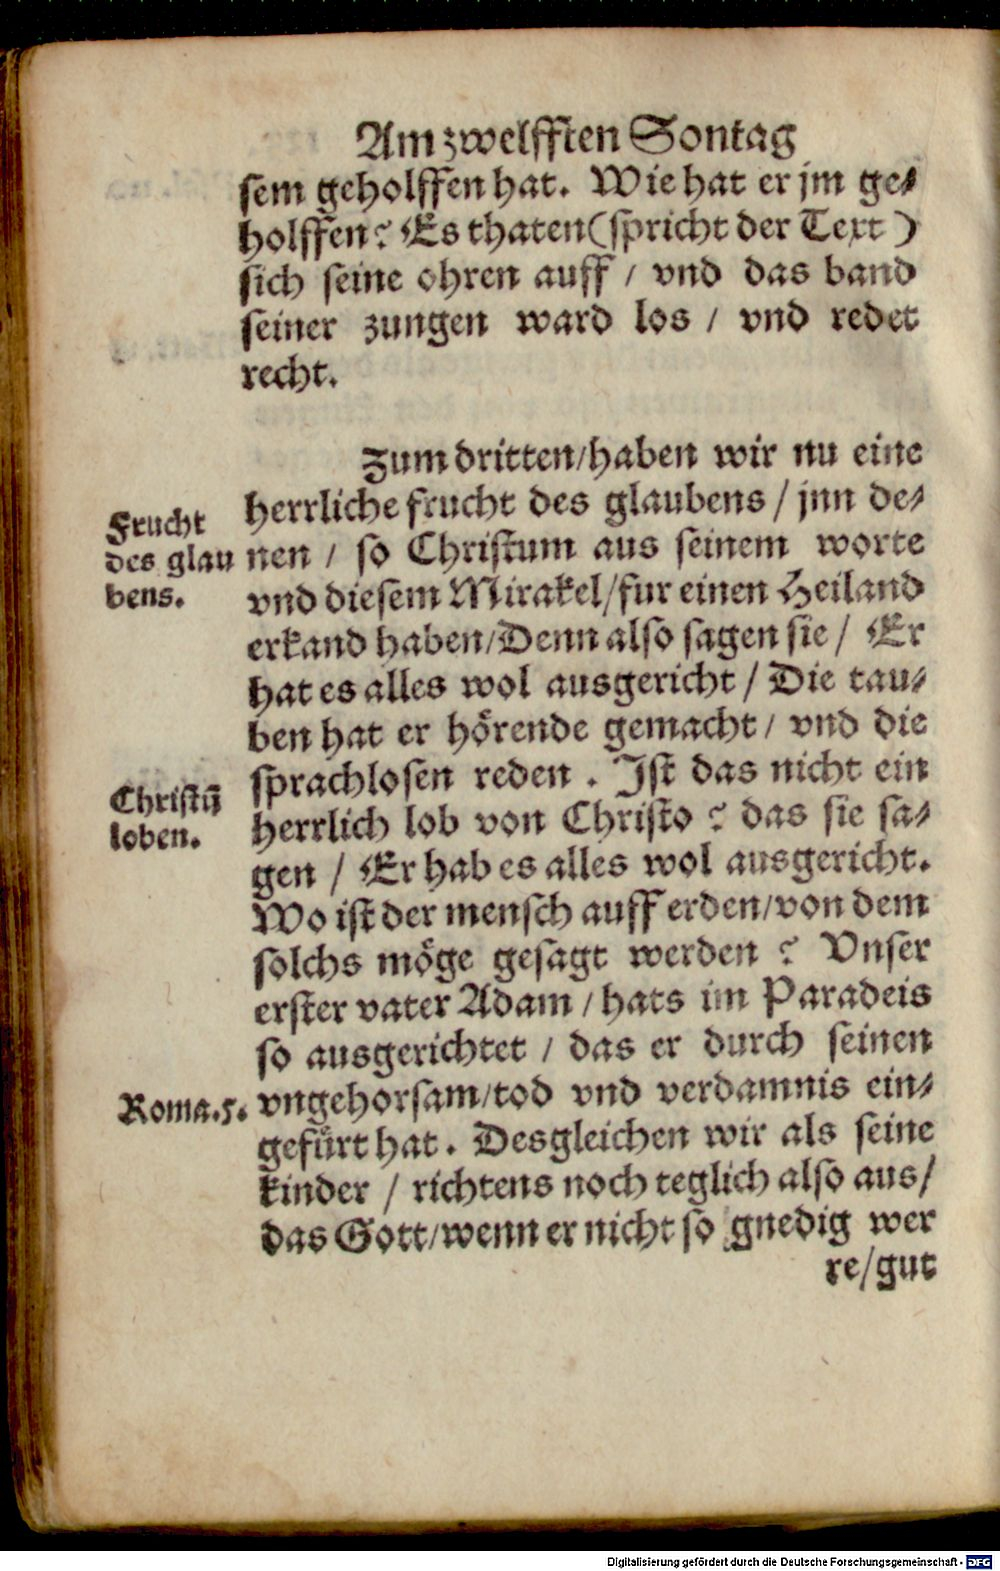 Am zwelfften Sontag
sem geholffen hat. Wie hat er jm ge⸗
holffen? Es thaten (spricht der Text)
sich seine ohren auff / vnd das band
seiner zungen ward los / vnd redet
recht.
Zum dritten / haben wir nu eine
herrliche frucht des glaubens / jnn de⸗
Frucht
des glau
bens.
nen / so Christum aus seinem worte
vnd diesem Mirakel / fur einen Heiland
erkand haben / Denn also sagen sie / Er
hat es alles wol ausgericht / Die tau⸗
ben hat er hörende gemacht / vnd die
sprachlosen reden. Ist das nicht ein
Christū
loben.
herrlich lob von Christo? das sie sa⸗
gen / Er hab es alles wol ausgericht.
Wo ist der mensch auff erden / von dem
solchs möge gesagt werden? Vnser
erster vater Adam / hats im Paradeis
so ausgerichtet / das er durch seinen
Roma.5.
vngehorsam / tod vnd verdamnis ein⸗
gefürt hat. Desgleichen wir als seine
kinder / richtens noch teglich also aus /
das Gott / wenn er nicht so gnedig wer
re / gut
Digitalisierung gefördert durch die Deutsche Forschungsgemeinschaft - DFG